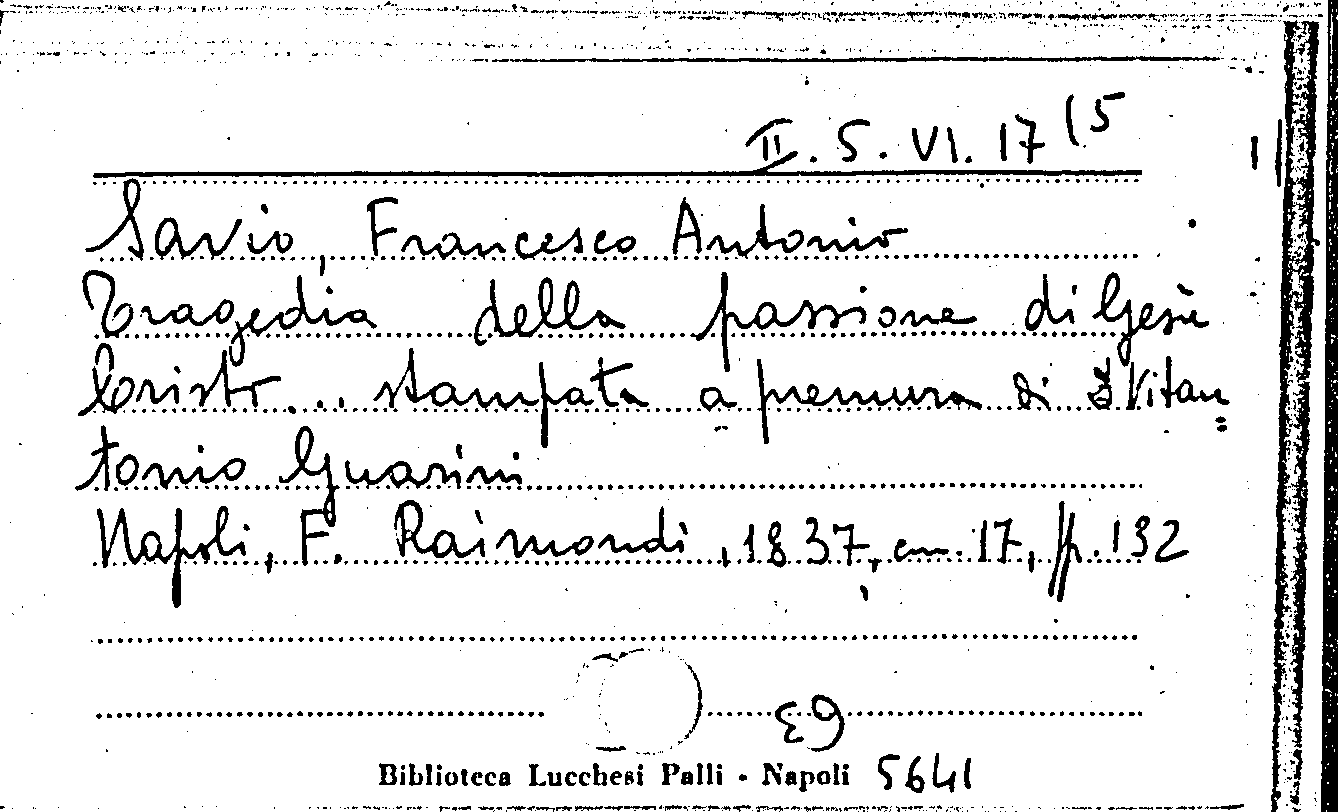 II. S. VI. 17 (5
Savio, Francesco Antonio
Tragedia della passione di Gesù
Cristo... stampata a premura di Vitan=
tonio Guarini
Napoli, F. Raimondi, 1837, cm. 17, pp. 132
Biblioteca Lucchesi Palli - Napoli 5641